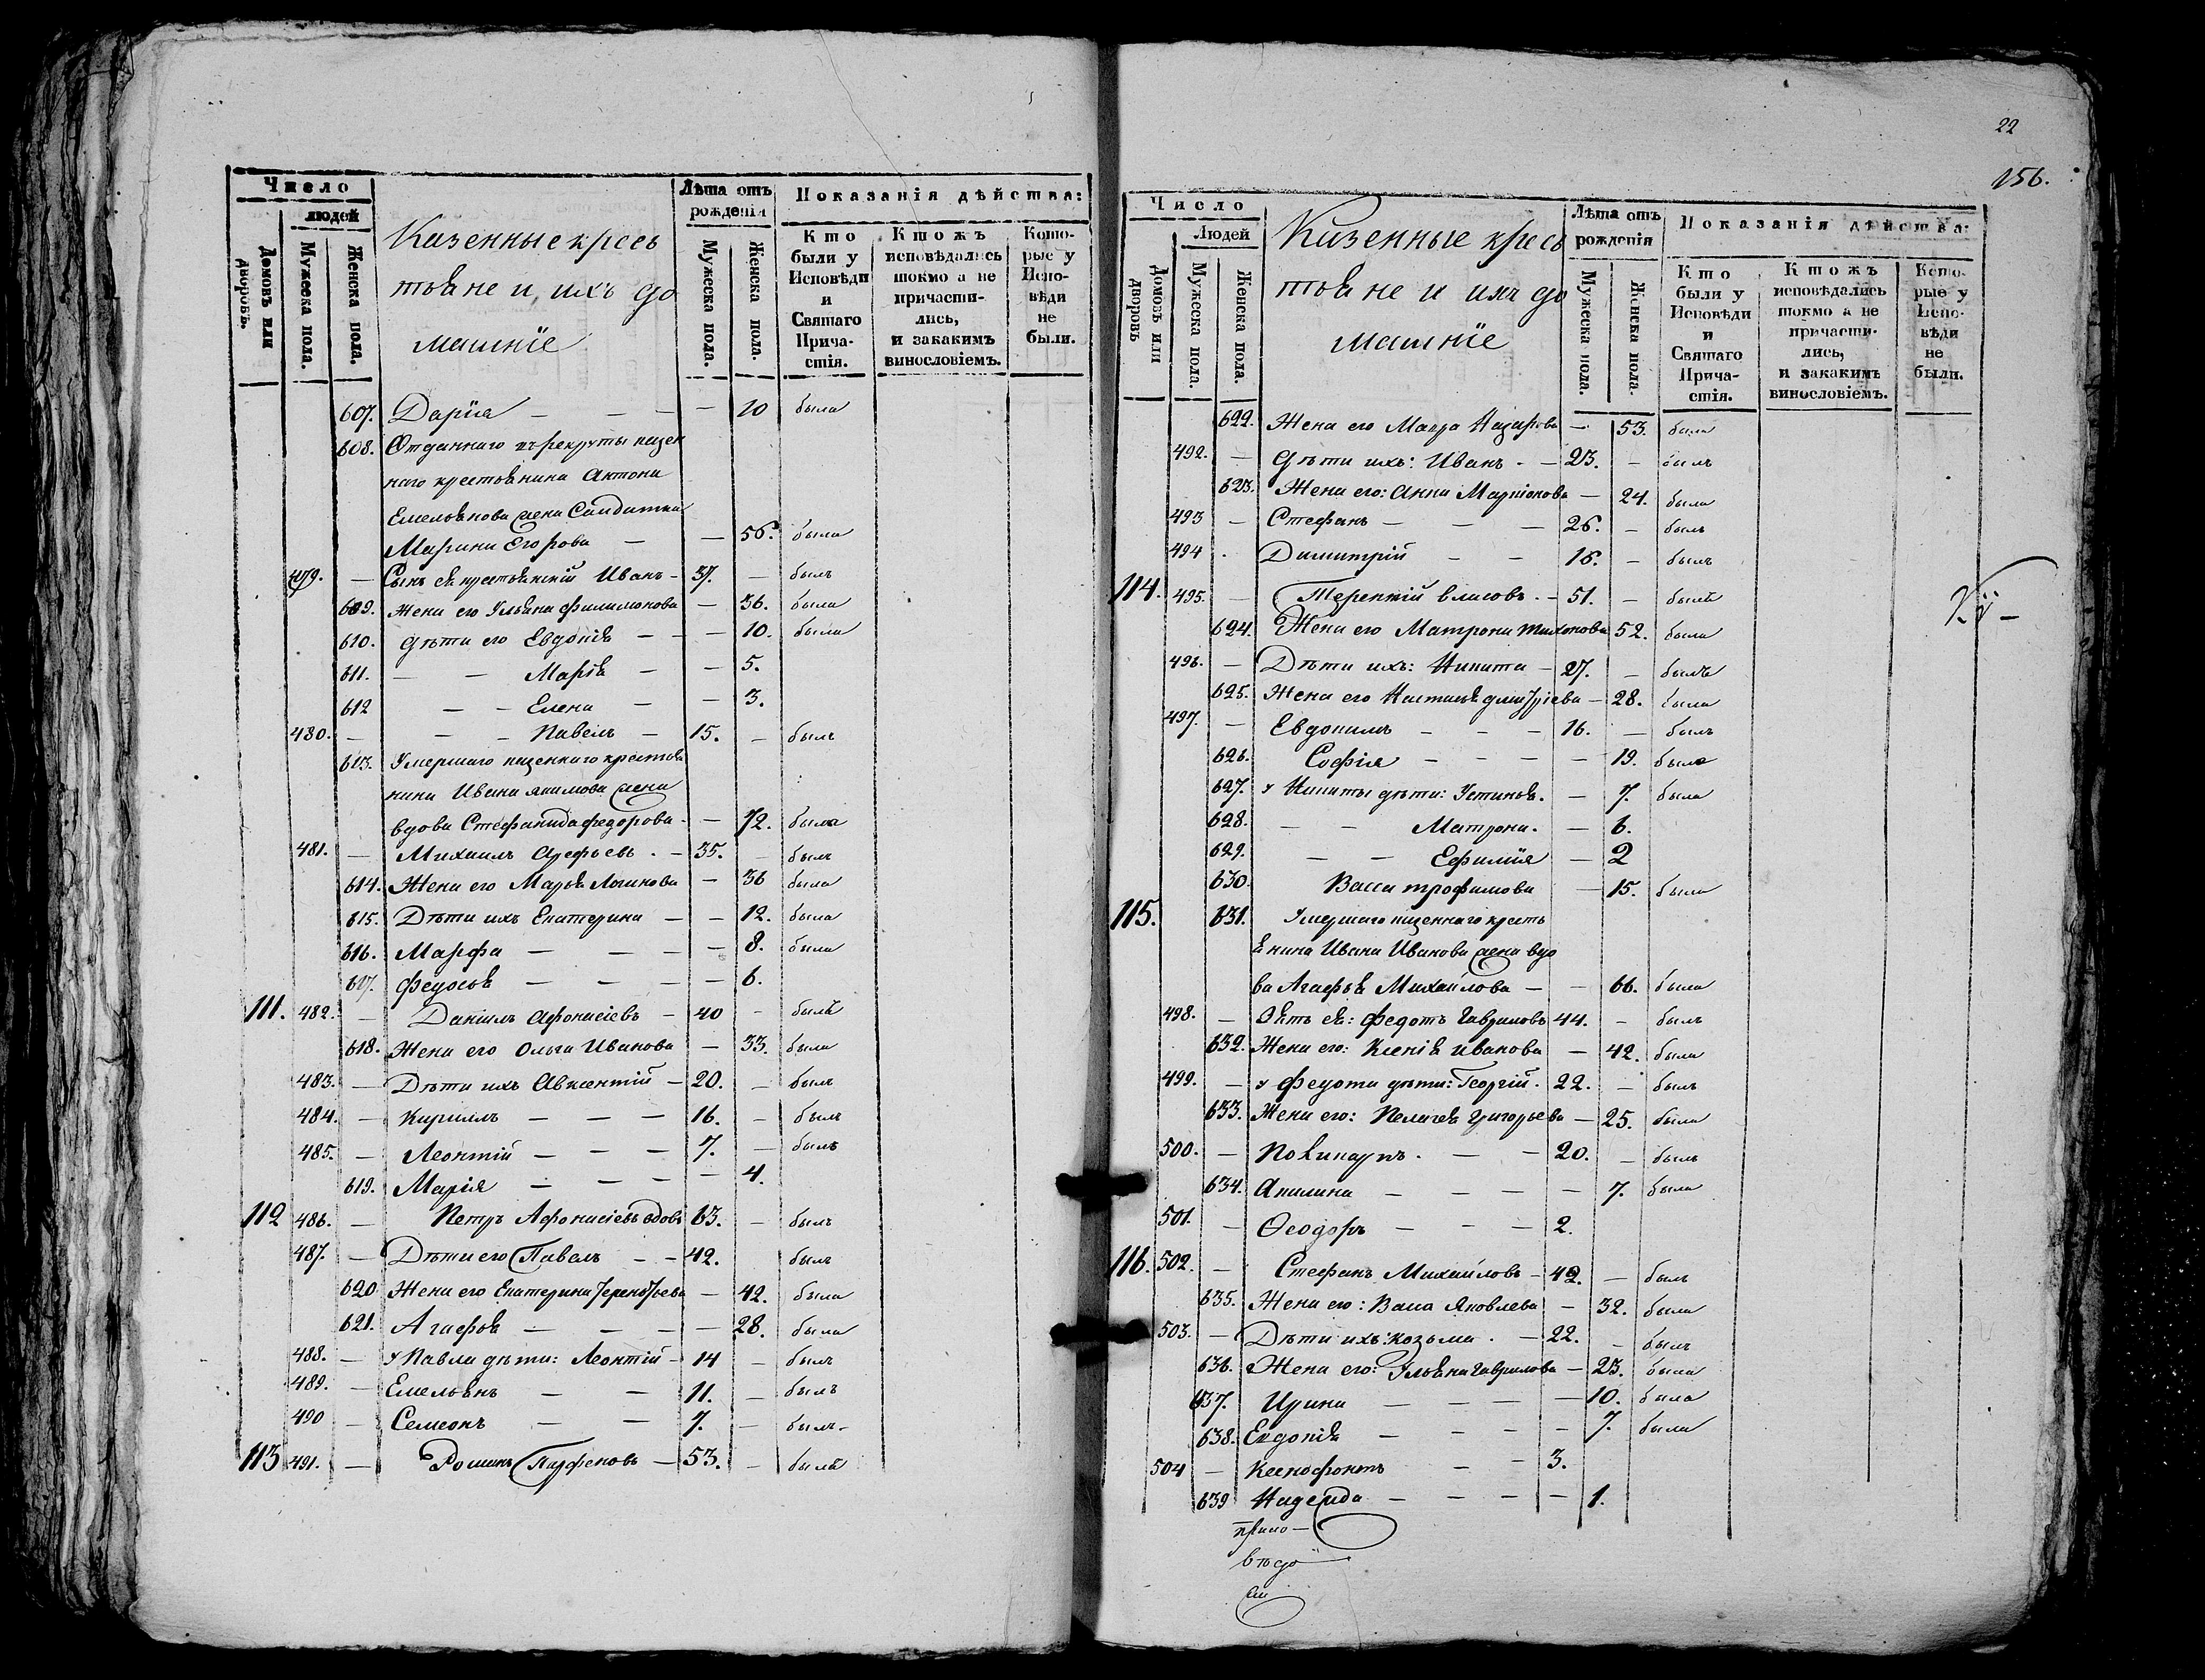 Число
людей
Домовъ или дворовъ.
Мужеска пола.
Женска пола.
Казенные кресь
тьяне и ихъ до
машніе
Лѣта отъ рожденія
Мужеска пола.
Женска пола.
Показанія дѣйства:
Кто были у Исповѣди и Святаго Прича-стія.
Ктожъ исповѣдались токмо а не причасти-лись, и закакимъ винословіемъ.
Кото-рые у Испо-вѣди не были.
607. Дарія — — — — 10 была
608. Отданнаго въ рекруты казен
наго крестьянина Антона
Емельянова жена Солдатка
Марина Егорова — — 56. была
479. — Сынъ ея крестьянскій Иванъ — 37. — былъ
609. Жена его Ульяна Филимонова — 36. была
610. Дѣти его Евдокія — — — 10. была
611. — — Марія — — 5.
612 — — Елена — — 3.
480. — — — Павелъ — 15. — былъ
613. Умершаго казеннаго крестья
нина Ивана Якимова жена
вдова Стефанида Федорова — — 72. была
481. — Михаилъ Арефьевъ — 35. — былъ
614. Жена его Марья Логинова — 36 была
615. Дѣти ихъ Екатерина — — 12. была
616. Марфа — — — — 8. была
617. Федосья — — — — 6.
111. 482. — Даніилъ Афонасіевъ — 40 — былъ
618. Жена его Ольга Иванова — 33. была
483. — Дѣти ихъ Авксентій — 20. — былъ
484. — Кириллъ — — — 16. — былъ
485. — Леонтій — — — 7. — былъ
619. Марія — — — — 4.
112 486. — Петръ Афонасіевъ вдовъ 63. — былъ
487. — Дѣти его Павелъ — — 42. былъ
620 Жена его Екатерина Терентьева — 42. была
621. Агафья — — — — 28. была
488. — У Павла дѣти: Леонтій — 14 — былъ
489. — Емельянъ — — 11. — былъ
490 — Семеонъ — — 7. — былъ
113 491. — Романъ Парфеновъ — 53. — былъ
22
156.
Число
Людей
Домовъ или дворовъ
Мужеска пола.
Женска пола.
Казенные кресь
тьяне и ихъ до
машніе
Лѣта отъ рожденія
Мужеска пола.
Женска пола.
Показанія дѣйства:
Кто были у Исповѣди и Святаго Прича-стія.
Ктожъ исповѣдались токмо а не причасти-лись, и закакимъ винословіемъ.
Кото-рые у Испо-вѣди не были.
622. Жена его Мавра Назарова — 53. была
492. — Дѣти ихъ: Иванъ — 23. — былъ
623. Жена его: Анна — 24. была
493 — Стефанъ — — — 26. — былъ
494 Димитрій — — 16. — былъ
114. 495. — Терентій Власовъ — 51. — былъ
624. Жена его Матрона Тихонова 52. была
496. — Дѣти ихъ: Никита — 27. — былъ
625. Жена его Настасья Дмитріева — 28. была
497. — Евдокимъ — — — 16. — былъ
626. Софія — — — — 19. была
627. У Никиты дѣти: Устинья. — 7. была
628. — — Матрона. — 6.
629. — — Ефимія — 2
630. Васса Трофимова — 15. была
115. 631. Умершаго казеннаго кресть
янина Ивана Иванова жена вдо
ва Агафья Михайлова — — 66. была
498. — Зять ея: Федотъ Гавриловъ 44. — былъ
632. Жена его: Ксенія Иванова — 42. была
499. — У Федота дѣти: Георгій. 22. — былъ
633. Жена его: Пелагея Григорьева — 25. была
500. — Поликарпъ. — — 20. — былъ
634. Акилина — — — — 7. была
501. — Ѳеодоръ — — — 2.
116. 502. — Стефанъ Михайловъ — 42. — былъ
635. Жена его: Васса Яковлева — 32. была
503. — Дѣти ихъ: Козьма. — 22. — былъ
636. Жена его: Ульяна Гаврилова — 23. была
637. Ирина — — — — 10. была
638. Евдокія — — — — 7. была
504 — Ксенофонтъ — — 3.
639 Надежда — — — — 1.